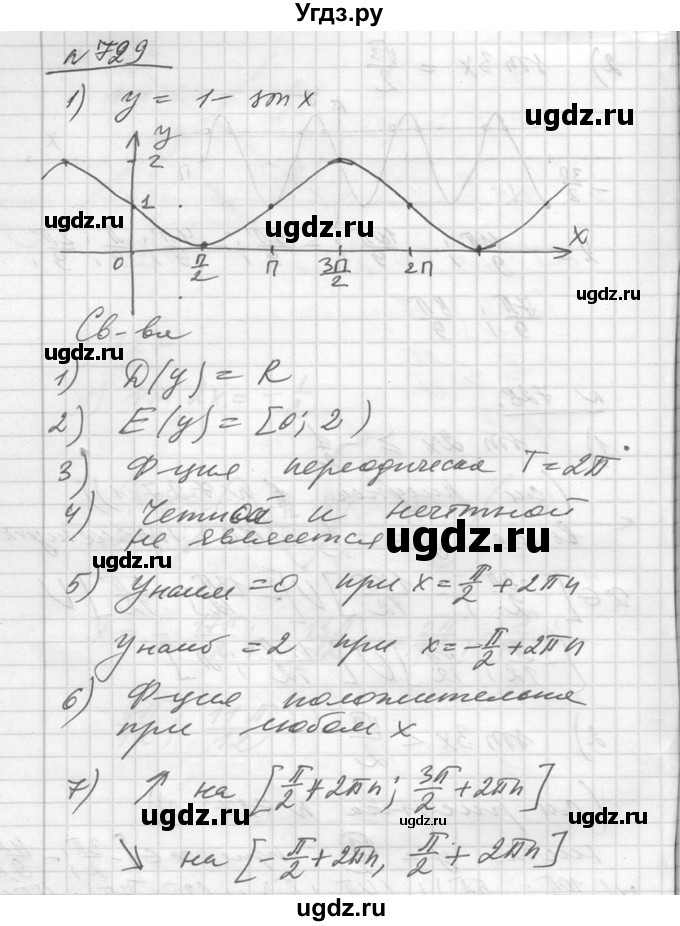 Угдз.ру
n 729
1) y = 1 - sin x
y
2
1
ugdz.ru
ugdz.ru
ugdz.ru
ugdz.ru
0 π/2 π 3π/2 2π x
Св-ва
ugdz.ru
1) D(y) = R
2) E(y) = [0; 2)
3) Ф-ция периодическая T = 2π
4) Четной и нечетной
не является
ugdz.ru
ugdz.ru
5) y наим = 0 при x = π/2 + 2πn
y наиб = 2 при x = -π/2 + 2πn
6) Ф-ция положительна
при любом x
7) ↑ на [π/2 + 2πn; 3π/2 + 2πn]
ugdz.ru
ugdz.ru
↘ на [-π/2 + 2πn, π/2 + 2πn]
ugdz.ru